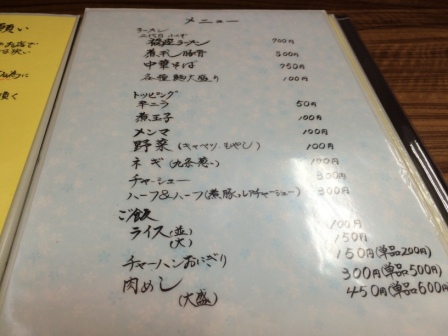 願い
メニュー
ラーメン
ラーメン 700円
煮干し豚骨 800円
中華そば 750円
各種 麺大盛り 100円
トッピング
辛ニラ 50円
煮玉子 100円
メンマ 100円
野菜(キャベツ、もやし) 100円
ネギ(九条葱) 100円
チャーシュー 300円
ハーフ&ハーフ(煮豚、チャーシュー) 300円
ご飯
ライス(並) 100円
(大) 150円
チャーハンおにぎり 150円(単品200円)
肉めし 300円(単品500円)
(大盛) 450円(単品600円)